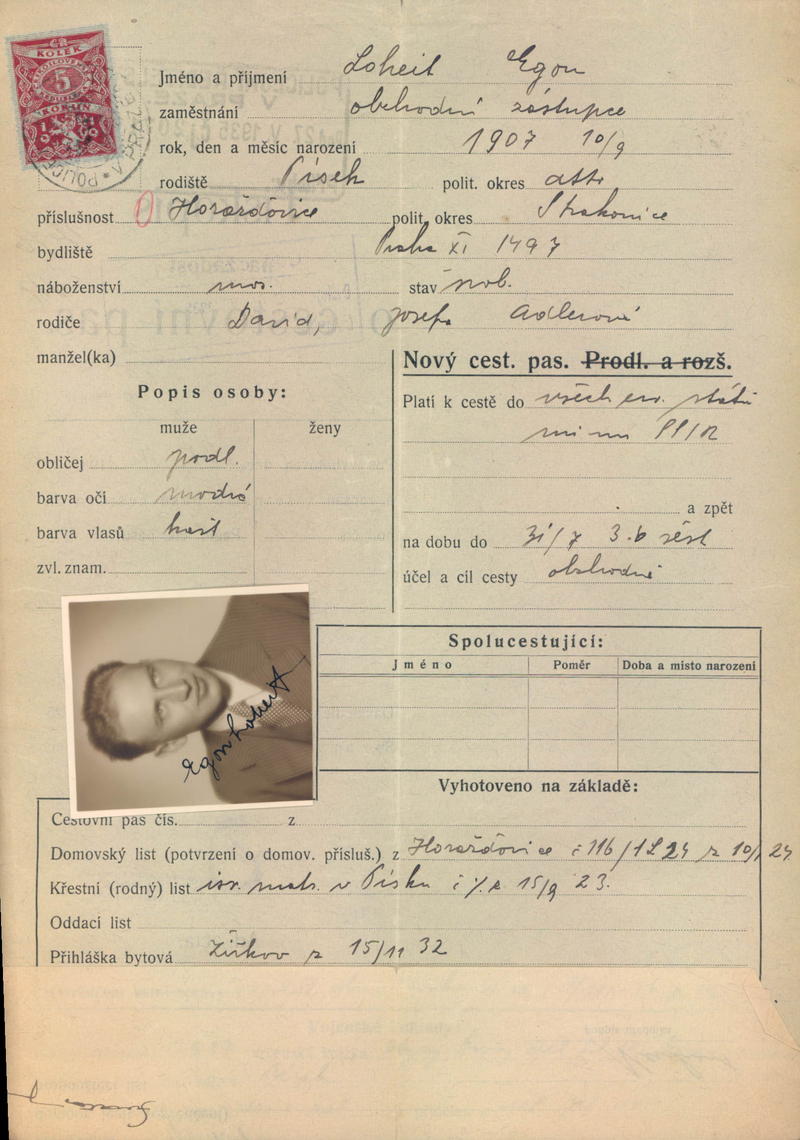 ČR
KOLEK
5
KORUN
Jméno a příjmení Loheit Egon
zaměstnání obchodní zástupce
rok, den a měsíc narození 1907 10/9
rodiště Písek polit. okres
příslušnost Horažďovice polit. okres Strakonice
bydliště Praha XI 1497
náboženství mos. stav svob.
rodiče David, Josefa Adlerová
manžel(ka)
Nový cest. pas. Prodl. a rozš.
Popis osoby:
muže ženy
obličej podl.
barva očí modré
barva vlasů kašt
zvl. znam.
Platí k cestě do všech ev. států
mimo
a zpět
na dobu do 31/7
účel a cíl cesty obchodní
Egon Loheit
Spolucestující:
Jméno Poměr Doba a místo narození
Vyhotoveno na základě:
Cestovní pas čís. z
Domovský list (potvrzení o domov. přísluš.) z Horažďovice č 116/1 z 10/1 24
Křestní (rodný) list isr. matr. v Písku č z 15/9 23.
Oddací list
Přihláška bytová Žižkov z 15/11 32